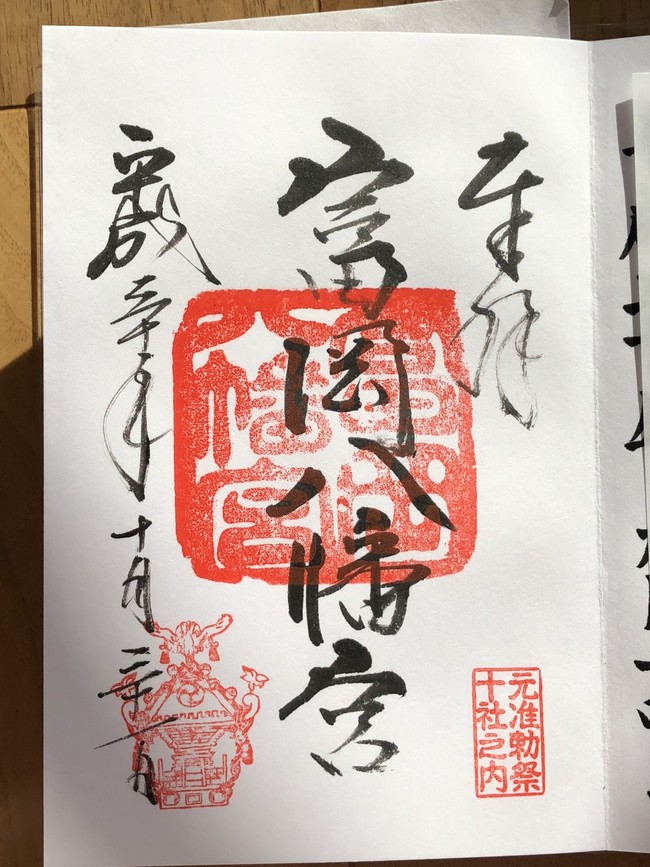 奉拝
元准勅祭
十社之内
富岡八幡宮
富岡
八幡宮
平成三十年十月三十一日